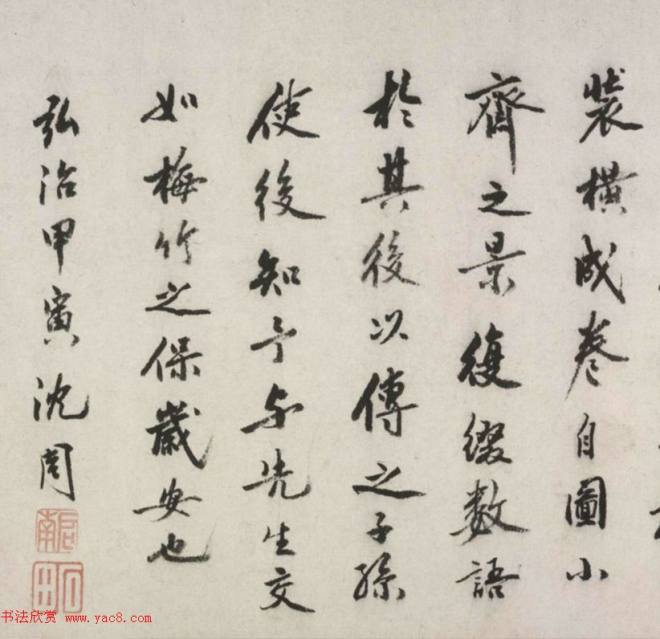 裝橫成卷自圖小
齋之景復綴數語
於其後以傳之子孫
使後知予与先生交
如梅竹之保歲安也
弘治甲寅沈周
啟南
石田
书法欣赏 www.yac8.com